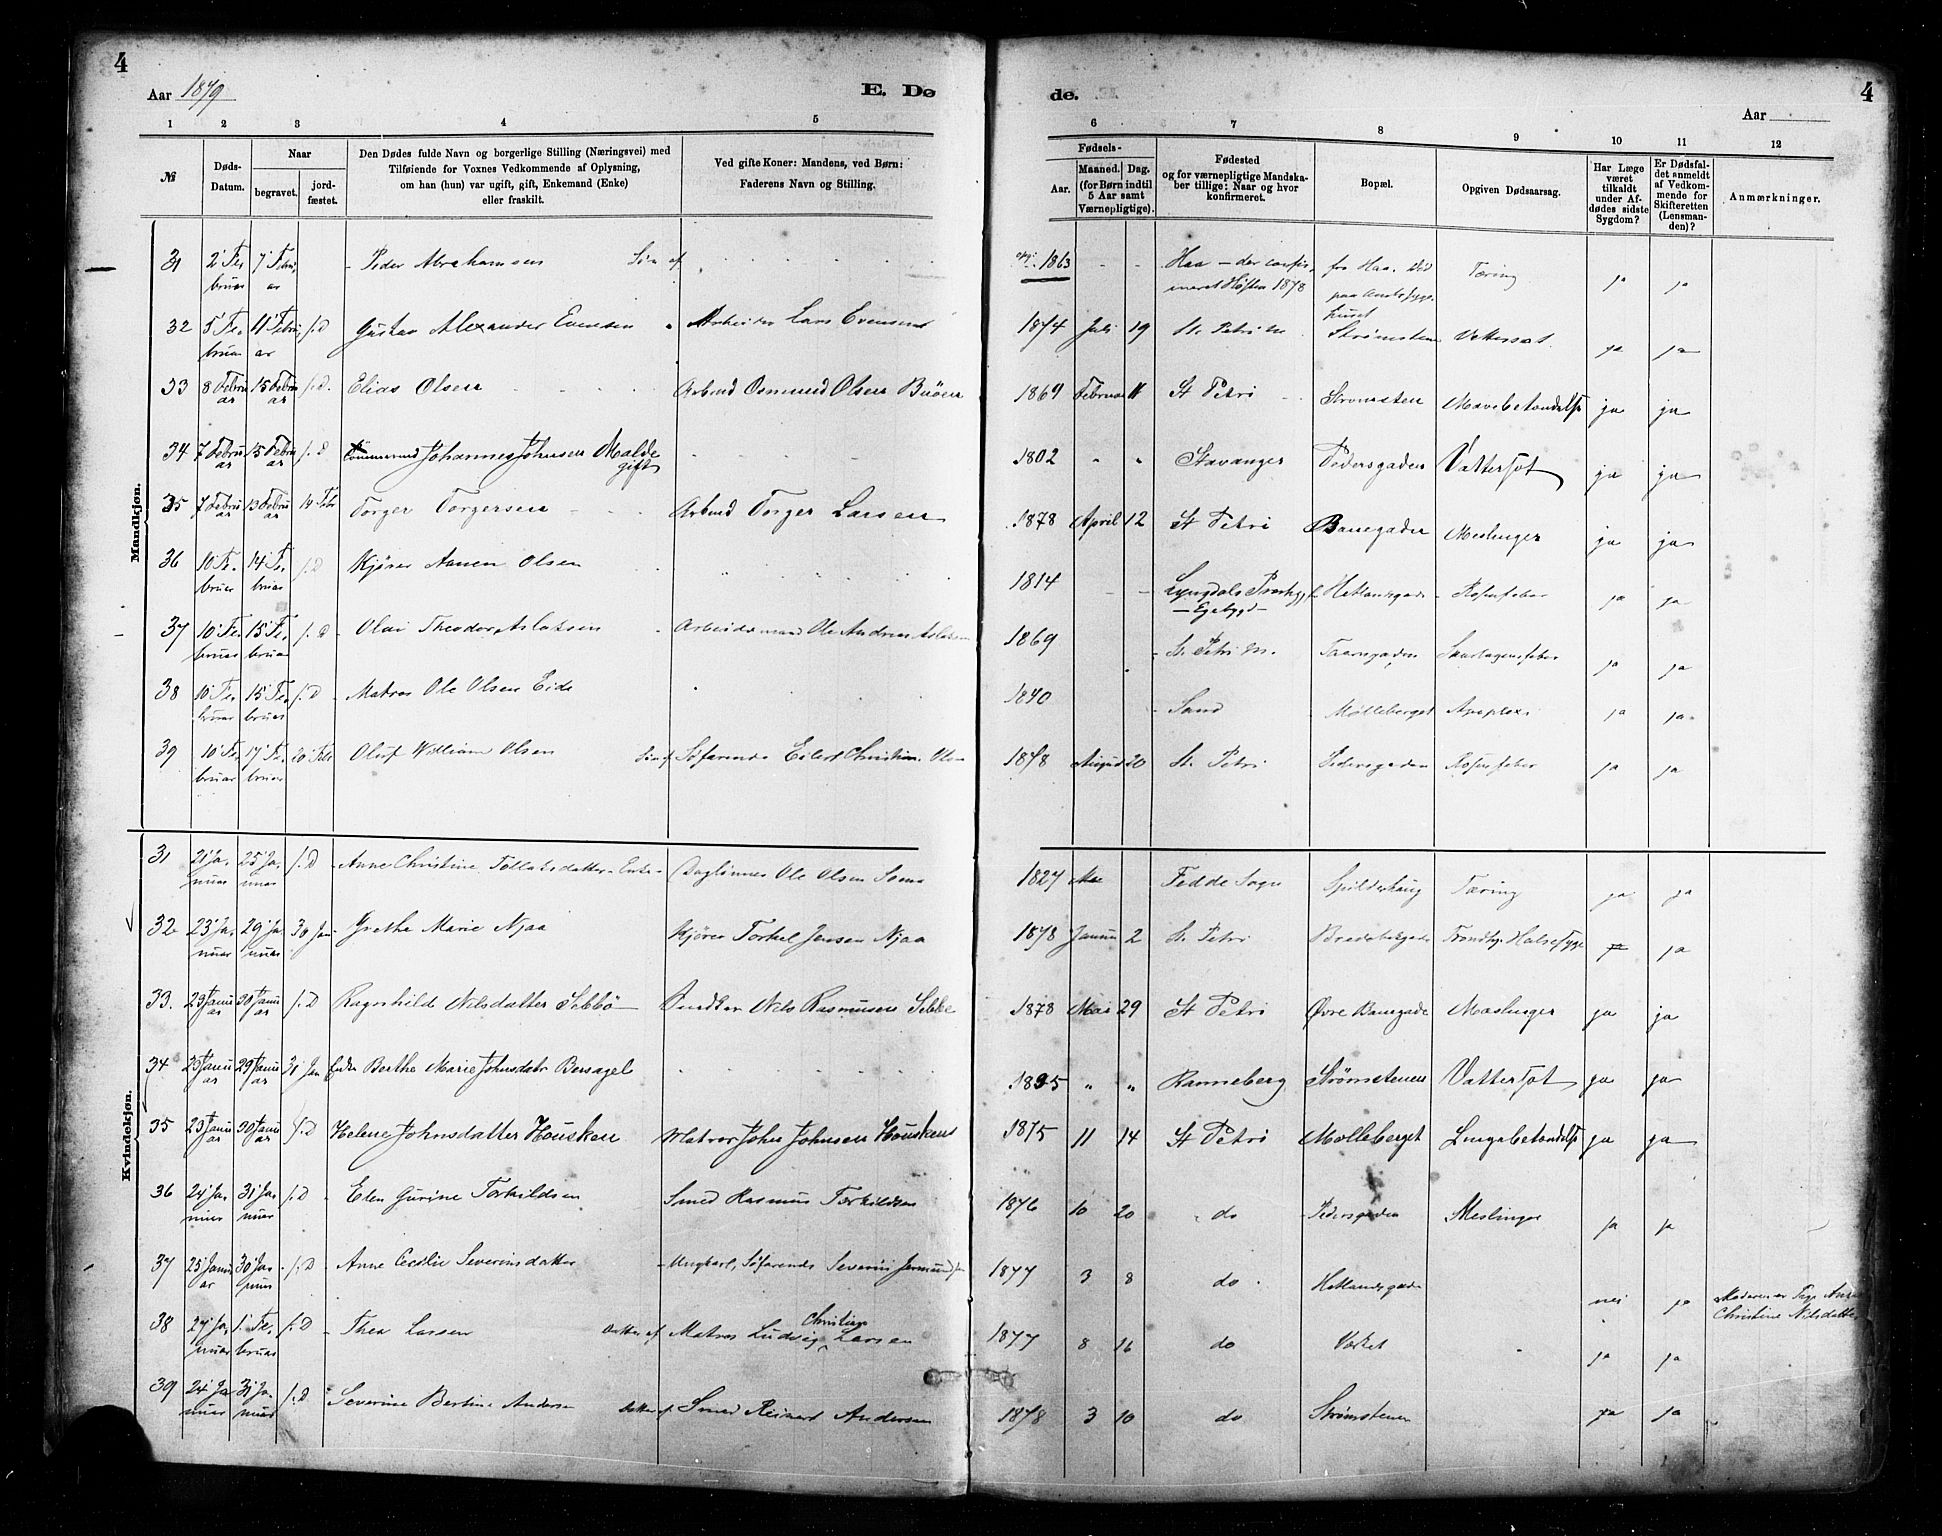 4
Aar 1879
E. Dø
de.
4
Aar
1 2 3 4 5 6 7 8 9 10 11 12
№
Døds-Datum.
Naar
begravet.
jord-fæstet.
Den Dødes fulde Navn og borgerlige Stilling (Næringsvei) med
Tilføiende for Voxnes Vedkommende af Oplysning,
om han (hun) var ugift, gift, Enkemand (Enke)
eller fraskilt.
Ved gifte Koner: Mandens, ved Børn:
Faderens Navn og Stilling.
Fødsels-
Aar. Maaned. Dag.
(for Børn indtil
5 Aar samt
Værnepligtige).
Fødested
og for værnepligtige Mandska-
ber tillige: Naar og hvor
konfirmeret.
Bopæl.
Opgiven Dødsaarsag.
Har Læge
været
tilkaldt
under Af-
dødes sidste
Sygdom?
Er Dødsfal-
det anmeldt
af Vedkom-
mende for
Skifteretten
(Lensman-
den)?
Anmærkninger.
Mandkjøn.
31 2' Februar 7' Februar Peder Abrahamsen Søn af 1863 Haa - der confirmeret Høsten 1878 fra Haa. Død paa Amtssygehuset Tæring ja ja
32 5' Februar 11' Februar s.D Gustav Alexander Evensen Arbeider Lars Evensen 1874 Juli 19 St. Petri M Strømsten Vattersot ja ja
33 8 Februar 15 Februar s.D. Elias Olsen Arbmd Osmund Olsen Buøen 1869 Februar 11 St Petri Strømsten Mavebetændelse ja ja
34 7 Februar 15 Februar s.D Tømmermd Johannes Johnsen Malde gift 1802 " " Stavanger Pedersgaden Vattersot ja ja
35 7 Februar 13 Februar 14 Febr Torger Torgersen Arbmd Torger Larsen 1878 April 12 St Petri Banegaden Meslinger ja ja
36 10' Februar 14' Februar s.D Kjører Aanen Olsen 1814 Lyngdals Præstegj - Egebygd - Hetlandsgade Rosenfeber ja ja
37 10' Februar 15' Februar s.D Olai Theodor Aslaksen Arbeidsmand Ole Andreas Aslaksen 1869 St. Petri M. Taarngaden Skarlagensfeber ja ja
38 10' Februar 15' Februar s.D Matros Ole Olsen Eide 1840 Sand Mølleberget Apoplexi ja ja
39 10' Februar 17' Februar 20' Febr Oluf William Olsen Søn af Søfarende Eilert Christian Olsen 1878 August 20 St. Petri Pedersgaden Rosenfeber ja ja
Kvindekjøn.
31 21' Januar 25' Januar s.D Anne Christine Tollaksdatter - Enke - Daglønner Ole Olsen Soma 1827 Fedde Sogn Spilderhaug Tæring ja ja
32 23' Januar 29' Januar 30 Jan Grethe Marie Njaa Kjører Torkel Jensen Njaa 1878 Januar 2 St. Petri Bredebakgade Halsesyge ja ja
33. 23 Januar 30 Januar s.D Ragnhilde Nilsdatter Sebbø Snedker Nils Rasmusen Sebbe 1878 Mai 29 St Petri Øvre Banegade Mæslinger ja ja
34 23 Januar 29 Januar 31 Jan Enke Berthe Marie Johnsdatr Bersagel " " Ranneberg Strømstenen Vattersot ja ja
35 23 Januar 30 Januar s.D Helene Johnsdatter Housken Matros John Johnsen Housken 1875 11 14 St Petri Mølleberget Lungebetændelse ja ja
36 24' Januar 31' Januar s.D Elen Gurine Torkildsen Smed Rasmus Torkildsen 1876 10 20 do Pedersgaden Meslinger ja ja
37 25' Januar 30' Januar s.D Anne Cecilie Severinsdatter Ungkarl, Søfarende Severin 1877 3 8 do Hetlandsgade nei ja Moderen er Pige Christine Nilsdatter
38 27' Januar 1' Februar s.D Thea Larsen Datter af Matros Ludvig Christian Larsen 1877 8 16 do Værket ja ja
39 24' Januar 31' Januar s.D Severine Bertine Andersen Datter af Smed Reinert Andersen 1878 3 10 do Strømstenen ja ja